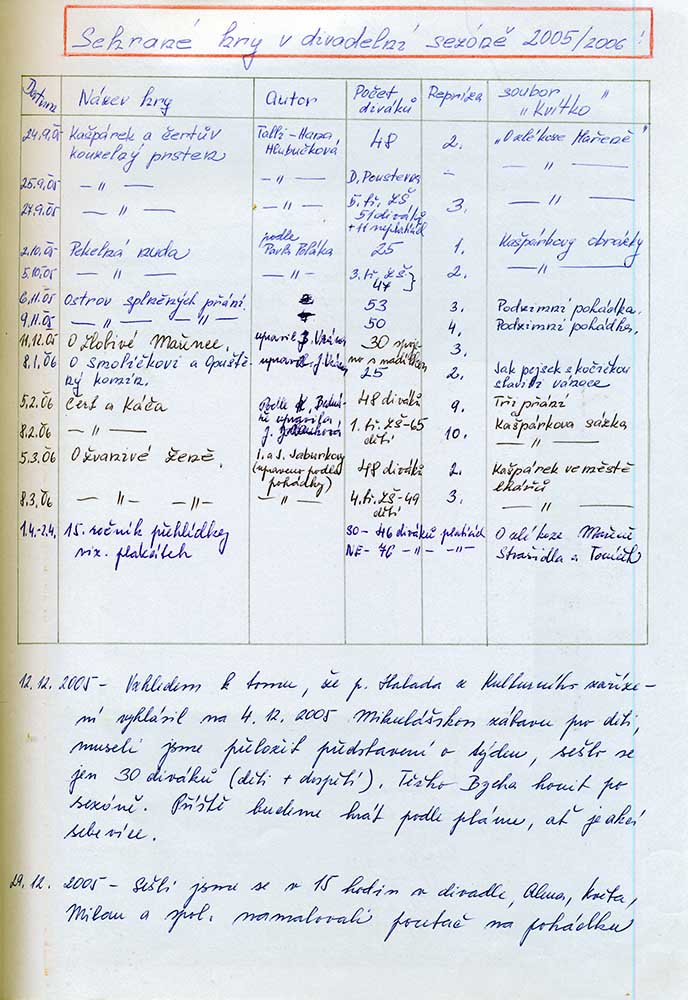 Sehrané hry v divadelní sezóně 2005/2006!
Datum Název hry Autor Počet diváků Repríza soubor "Kvítko"
24.9.05 Kašpárek a čertův kouzelný prsten Talli-Hana Hlubučková 48 2. "O zlé koze Mařeně"
25.9.05 — " — — " — D. Poustevna - — " —
27.9.05 — " — — " — I. tř. ZŠ 51 diváků + 11 neplatíc. 3. — " —
2.10.05 Pekelná nuda podle Pavla Poláka 25 1. Kašpárkovy obrázky
5.10.05 — " — — " — 3. tř. ZŠ 47 2. — " —
6.11.05 Ostrov splněných přání. 53 3. Podzimní pohádka.
9.11.05 — " — — " — 50 4. Podzimní pohádka.
11.12.05 O zlobivé Mařence. upravil J. 30 3.
8.1.06 O Smolíčkovi a Opuště- upravil J. 25 2. Jak pejsek s kočičkou
ný komín. stavili vánoce
5.2.06 Čert a Káča Podle upravila J. 48 diváků 9. Tři přání
8.2.06 — " — 1. tř. ZŠ-65 dětí 10. Kašpárkova sázka
— " —
5.3.06 O žvanivé ženě. I. a J. Jaburkovi (upraveno podle pohádky) 48 diváků 2. Kašpárek ve městě lhářů
8.3.06 — " — — " — — " — 4. tř. ZŠ-49 dětí 3. — " —
1.4.-2.4. 15. ročník přehlídky SO- 46 diváků platících O zlé koze Mařeně
viz. plakátek NE- 76 — " — — " — Strašidla a Tomášek
12.12. 2005 - Vzhledem k tomu, že p. Halada z Kulturního zaříze-
ní vyhlásil na 4.12.2005 Mikulášskou zábavu pro děti,
museli jsme přeložit představení o týden, sešlo se
jen 30 diváků (děti + dospělí). Těžko Bycha honit po
sezóně. Příště budeme hrát podle plánu, ať je akcí
sebevíce.
29.12. 2005 - Sešli jsme se v 15 hodin v divadle, Alena, Květa,
Milan a spol. namalovali poutač na pohádku